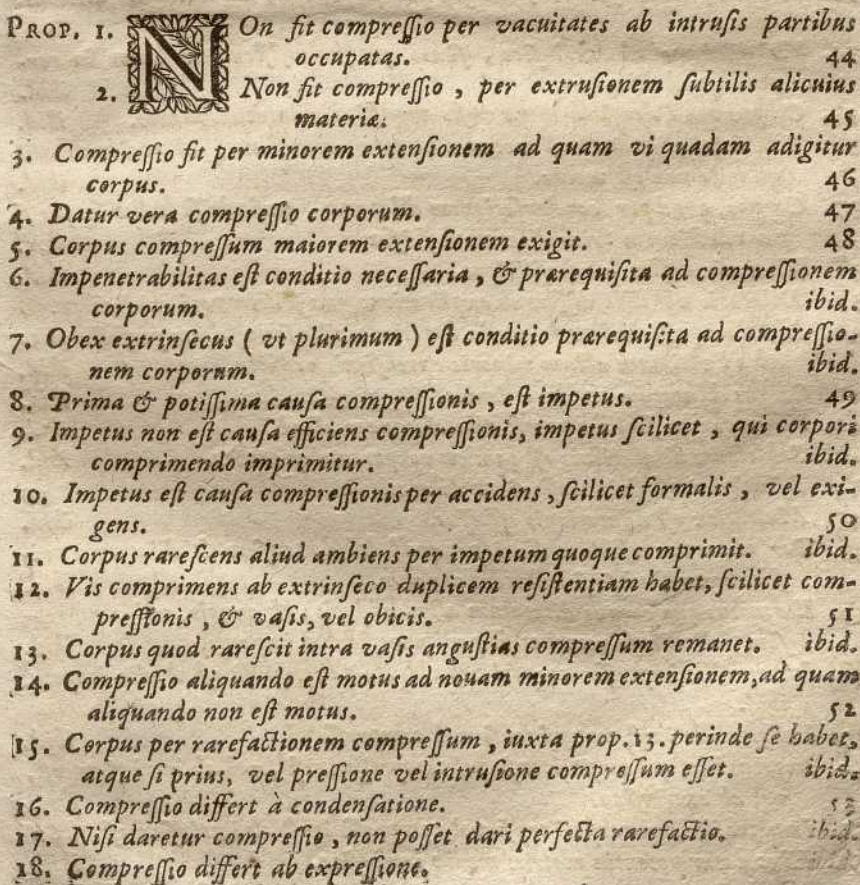 PROP. 1. NOn fit compreſſio per vacuitates ab intruſis partibus
occupatas. 44
2. Non fit compreſſio, per extruſionem ſubtilis alicuius
materiæ. 45
3. Compreſſio fit per minorem extenſionem ad quam vi quadam adigitur
corpus. 46
4. Datur vera compreſſio corporum. 47
5. Corpus compreſſum maiorem extenſionem exigit. 48
6. Impenetrabilitas eſt conditio neceſſaria, & prærequiſita ad compreſſionem
corporum. ibid.
7. Obex extrinſecus ( vt plurimum ) eſt conditio prærequiſita ad compreſſio-
nem corporum. ibid.
8. Prima & potiſſima cauſa compreſſionis, eſt impetus. 49
9. Impetus non eſt cauſa efficiens compreſſionis, impetus ſcilicet, qui corpori
comprimendo imprimitur. ibid.
10. Impetus eſt cauſa compreſſionis per accidens, ſcilicet formalis, vel exi-
gens. 50
11. Corpus rareſcens aliud ambiens per impetum quoque comprimit. ibid.
12. Vis comprimens ab extrinſeco duplicem reſiſtentiam habet, ſcilicet com-
preſſionis, & vaſis, vel obicis. 51
13. Corpus quod rareſcit intra vaſis anguſtias compreſſum remanet. ibid.
14. Compreſſio aliquando eſt motus ad nouam minorem extenſionem, ad quam
aliquando non eſt motus. 52
15. Corpus per rarefactionem compreſſum, iuxta prop. 13. perinde ſe habet,
atque ſi prius, vel preſſione vel intruſione compreſſum eſſet. ibid.
16. Compreſſio differt à condenſatione. 53
17. Niſi daretur compreſſio, non poſſet dari perfecta rarefactio. ibid.
18. Compreſſio differt ab expreſſione.